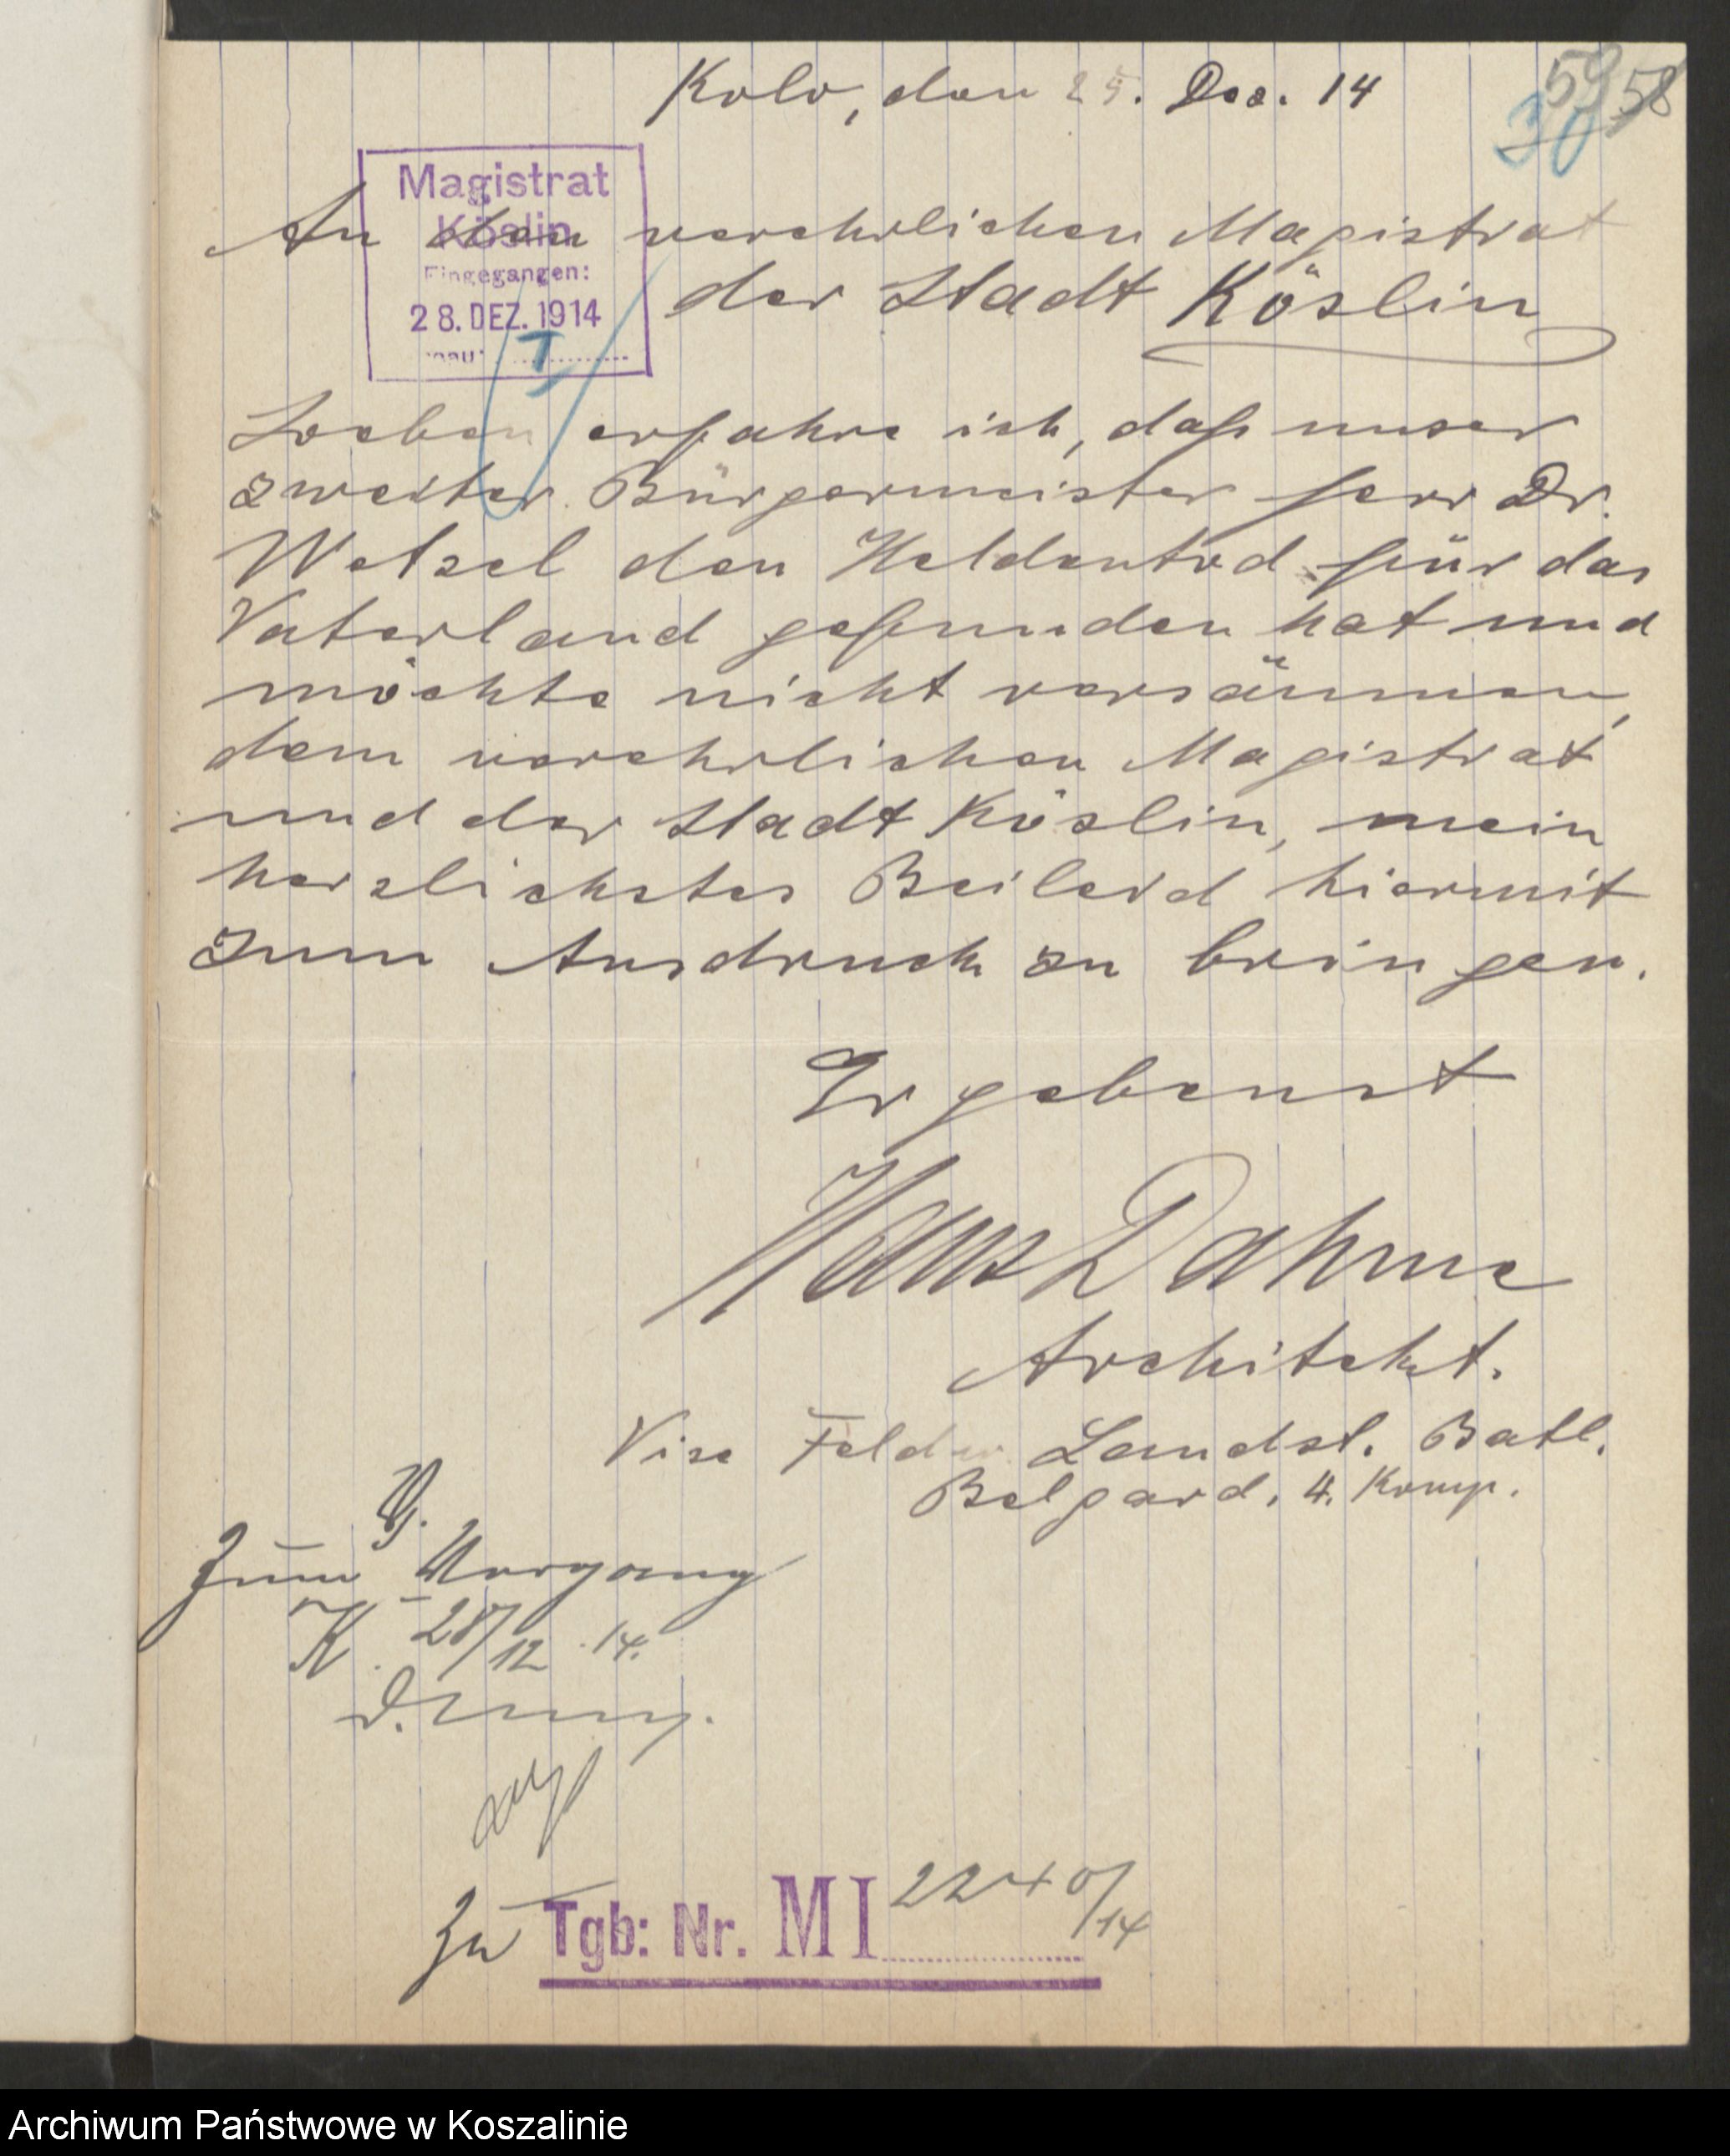 Kolo, den 25. Dez. 14
59 58
30
Magistrat
Köslin
Eingegangen:
28. DEZ. 1914
An den verehrlichen Magistrat
der Stadt Köslin
Soeben erfahre ich, daß unser
zweiter Bürgermeister Herr Dr.
Wetzel den Heldentod für das
Vaterland gefunden hat und
möchte nicht versäumen,
dem verehrlichen Magistrat
und der Stadt Köslin, mein
herzlichstes Beileid hiermit
zum Ausdruck zu bringen.
Ergebenst
Hans Dahme
Architekt.
Vize Feldw. Landst. Batl.
Belgard, 4. Komp.
Zum Vorgang
K. 28/12 14.
Zu Tgb: Nr. M I 2240/14
Archiwum Państwowe w Koszalinie